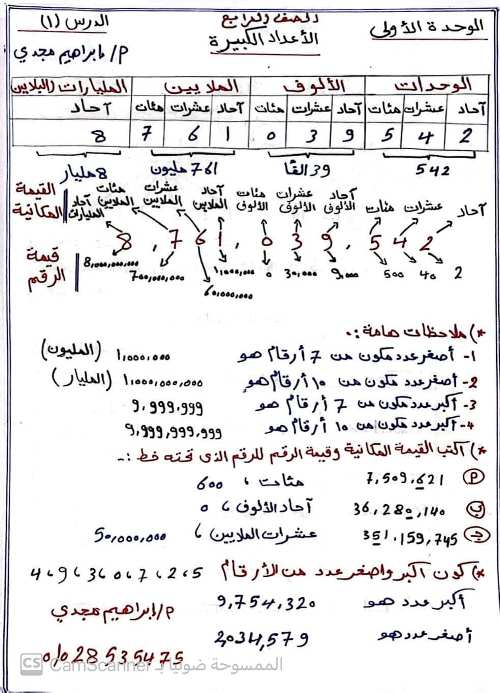 الوحدة الأولى الصف الرابع الدرس (١)
الأعداد الكبيرة
م/ إبراهيم مجدي
الوحدات الألوف الملايين المليارات (البلايين)
آحاد عشرات مئات آحاد عشرات مئات آحاد عشرات مئات آحاد
2 4 5 9 3 0 1 6 7 8
542 39 ألفًا 761 مليون 8 مليار
القيمة المكانية
آحاد عشرات مئات آحاد الألوف عشرات الألوف مئات الألوف آحاد الملايين عشرات الملايين مئات الملايين آحاد المليارات
8,761,039,542
قيمة الرقم
2 40 500 9,000 30,000 0 1,000,000 60,000,000 700,000,000 8,000,000,000
*) ملاحظات هامة :.
1- أصغر عدد مكون من 7 أرقام هو 1,000,000 (المليون)
2- أصغر عدد مكون من 10 أرقام هو 1,000,000,000 (المليار)
3- أكبر عدد مكون من 7 أرقام هو 9,999,999
4- أكبر عدد مكون من 10 أرقام هو 9,999,999,999
*) اكتب القيمة المكانية وقيمة الرقم للرقم الذي تحته خط :-
(م) 7,509,621 مئات ، 600
(ب) 36,280,140 آحاد الألوف ، 0
(ج) 351,159,745 عشرات الملايين ، 50,000,000
*) كون أكبر وأصغر عدد من الأرقام 5 ، 2 ، 7 ، 0 ، 3 ، 9 ، 4
أكبر عدد هو 9,754,320
أصغر عدد هو 2,034,579
م/ إبراهيم مجدي
01028535475
الممسوحة ضوئيا بـ CamScanner